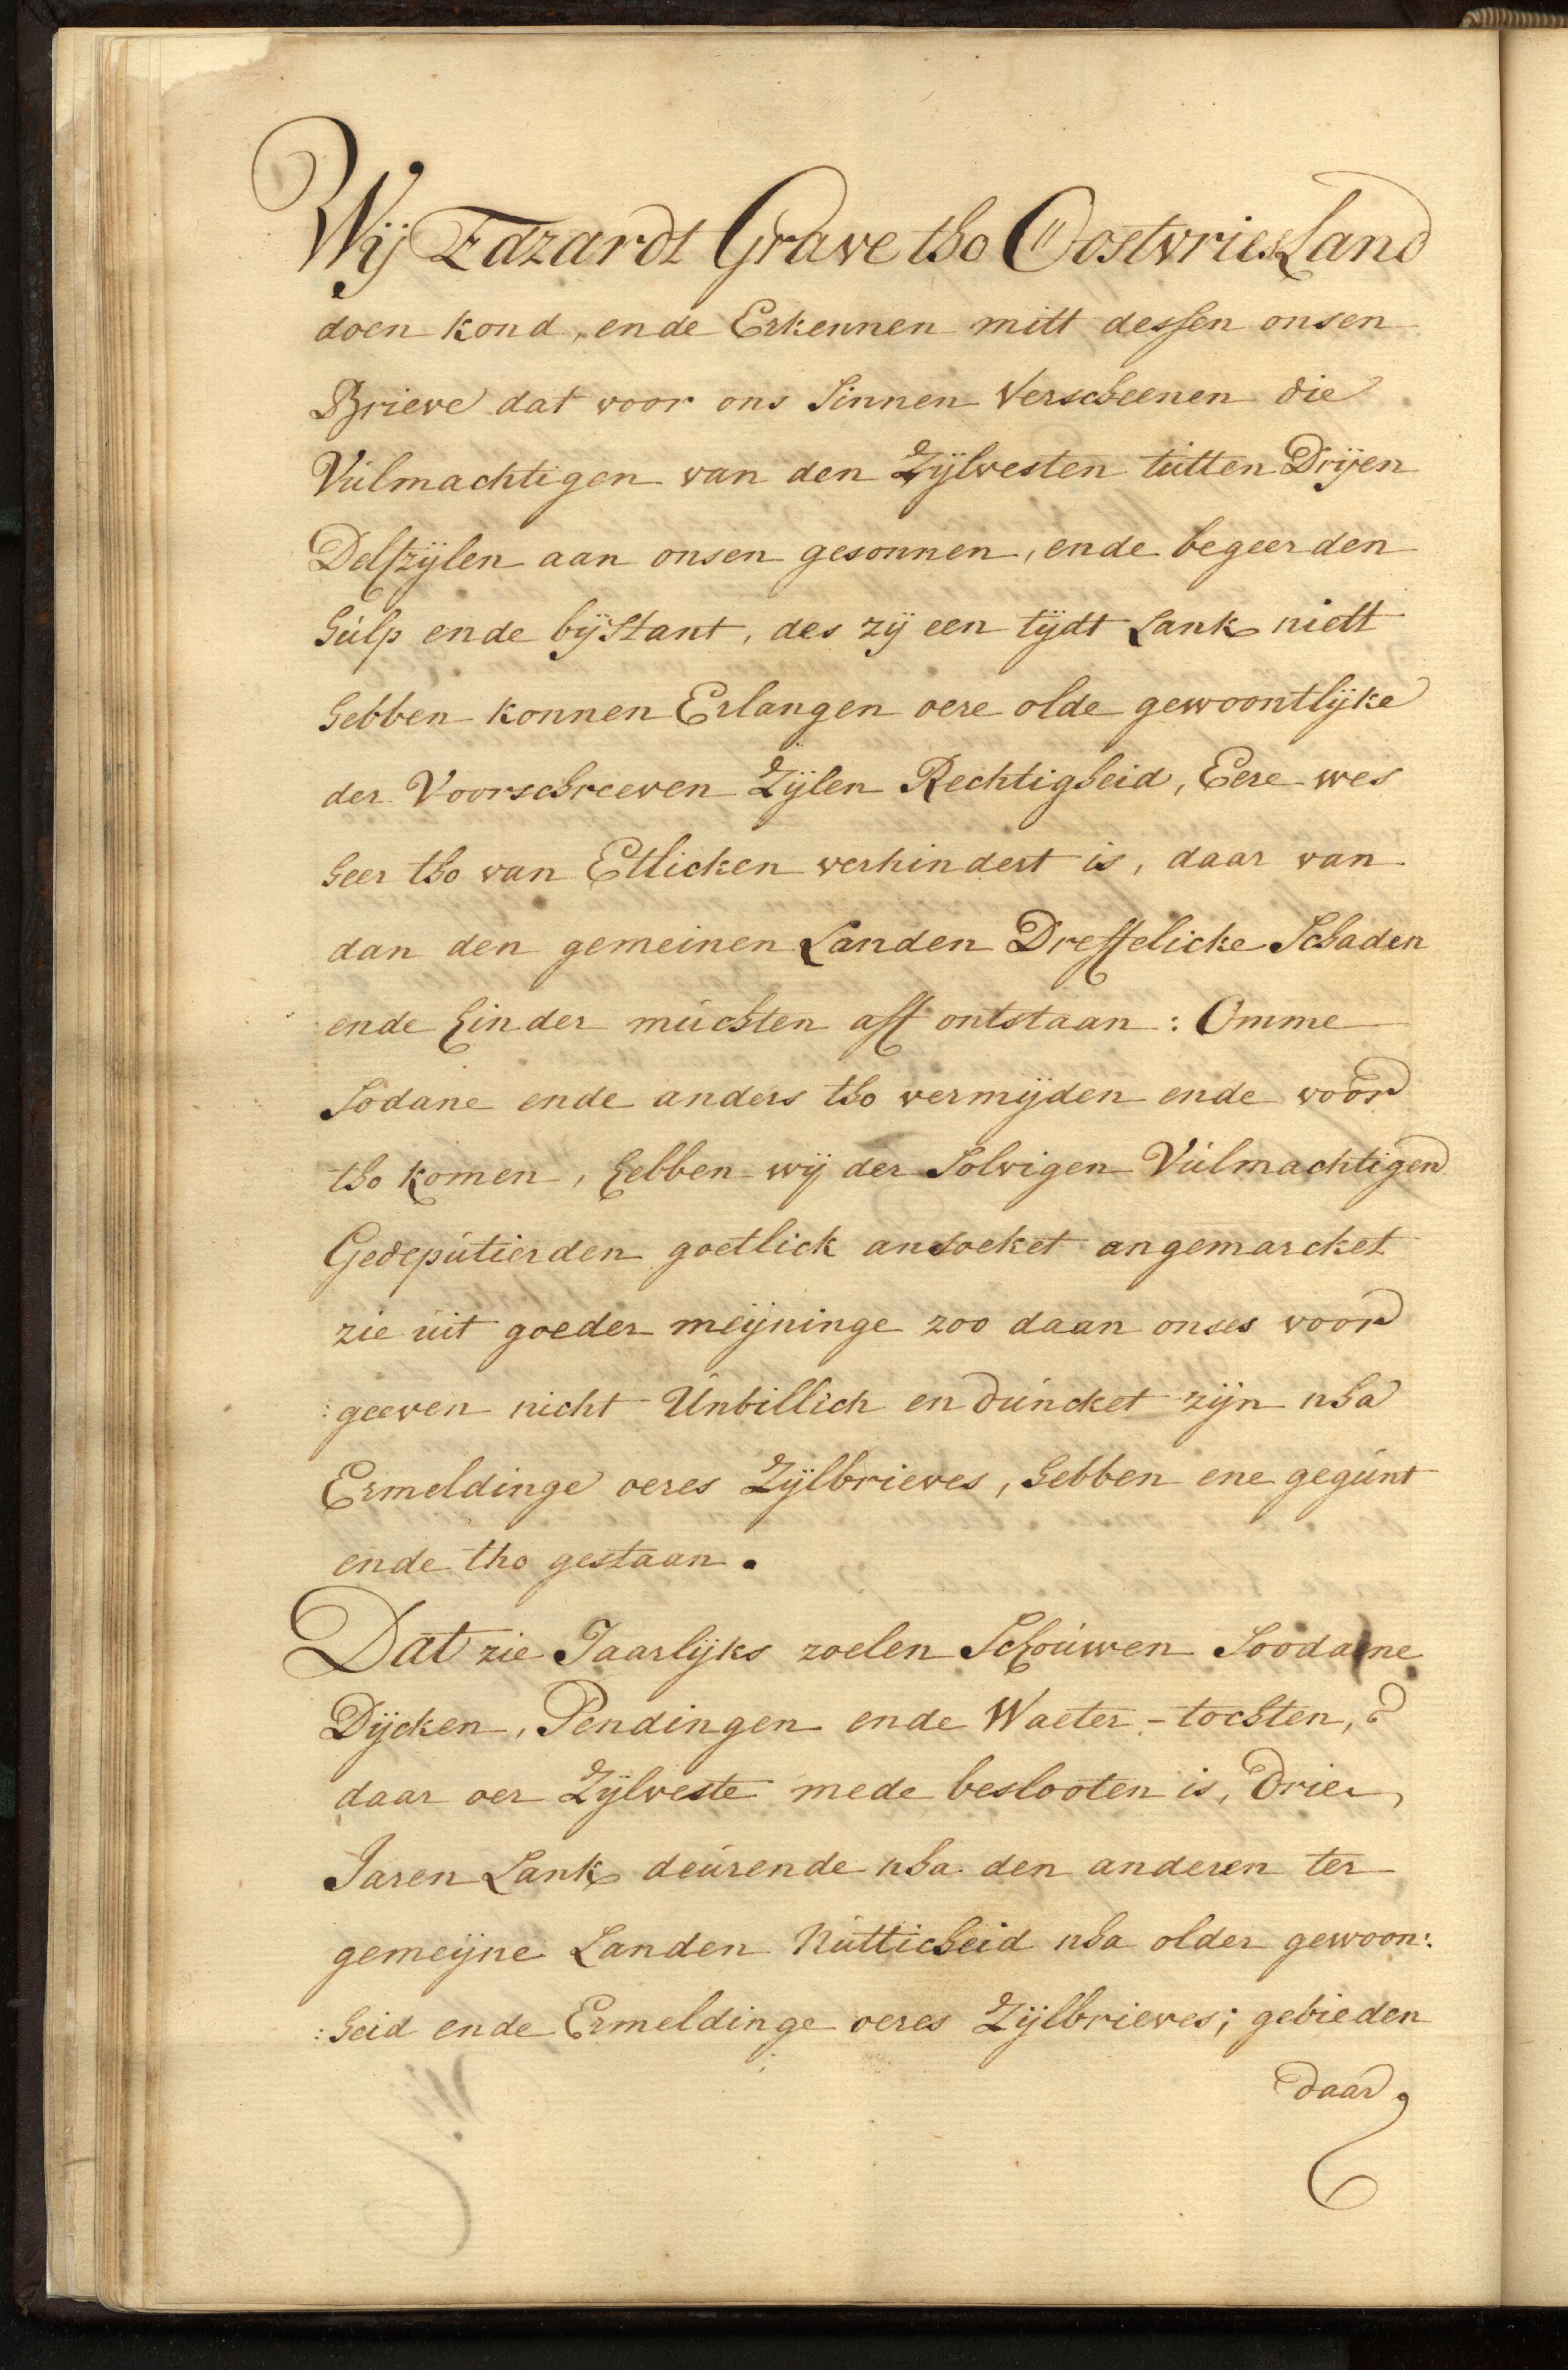 Wij Edzardt Grave tho Oostvriesland
doen kond, ende Erkennen mitt dessen onsen
Brieve dat voor ons sinnen Verscheenen die
Vulmachtigen van den Zijlvesten tutten Drijen
Delfzijlen aan onsen gesonnen, ende begeerden
hulp ende bijstant, des zij een tijdt Lank niett
hebben konnen Erlangen oere olde gewoontlijke
der Voorschreeven Zijlen Rechtigheid, Eere wes
heer tho van Etlicken verhindert is, daar van
dan den gemeinen Landen Dreffelicke Schaden
ende hinder muchten aff ontstaan: Omme
sodane ende anders tho vermijden ende voor
tho komen, hebben wij der Solvigen Vulmachtigen
Gedeputierden goetlick ansoeket angemarcket
zie uit goeder meijninge zoo daan onses voor
:geeven nicht Unbillich en duncket zijn nha
Ermeldinge oeres Zijlbrieves, hebben ene gegunt
ende tho gestaan.
Dat zie Jaarlijks zoelen Schouwen Soodaene
Dijcken, Pendingen ende Waeter-tochten,
daar oer Zijlveste mede beslooten is, Drie
Jaren Lank deurende nha den anderen ter
gemeijne Landen Nutticheid nha older gewoon:
:heid ende Ermeldinge oeres Zijlbrieves; gebieden
daar